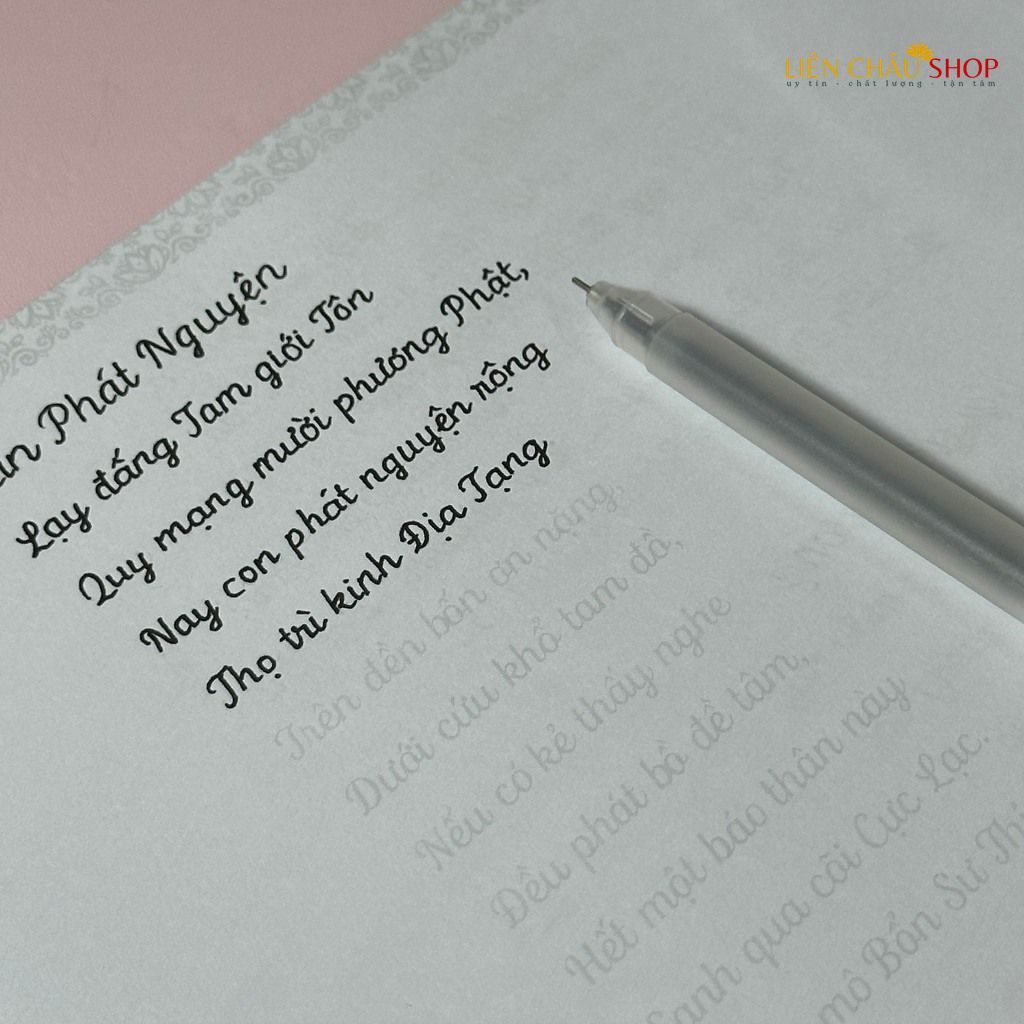 LIÊN CHÂU SHOP
uy tín - chất lượng - tận tâm
Phát Nguyện
Lạy đấng Tam giới Tôn
Quy mạng mười phương Phật,
Nay con phát nguyện rộng
Thọ trì kinh Địa Tạng
Trên đền bốn ơn nặng,
Dưới cứu khổ tam đồ,
Nếu có kẻ thấy nghe
Đều phát bồ đề tâm,
Hết một báo thân này
Sanh qua cõi Cực Lạc.
mô Bổn Sư